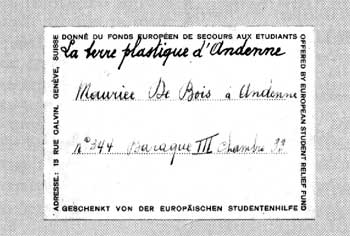 DONNÉ DU FONDS EUROPÉEN DE SECOURS AUX ETUDIANTS
La terre plastique d'Andenne
Mouriee De Bois à Andenne
N° 344 Baraque III Chambre
GESCHENKT VON DER EUROPÄISCHEN STUDENTENHILFE
ADRESSE: 13 RUE CALVIN, GENÈVE, SUISSE
OFFERED BY EUROPEAN STUDENT RELIEF FUND